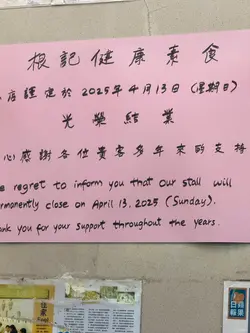 根記健康素食
店謹定於2025年4月13日(星期日)
光榮結業
心感謝各位貴客多年來的支持
regret to inform you that our stall will
permanently close on April 13, 2025 (Sunday).
Thank you for your support throughout the years.